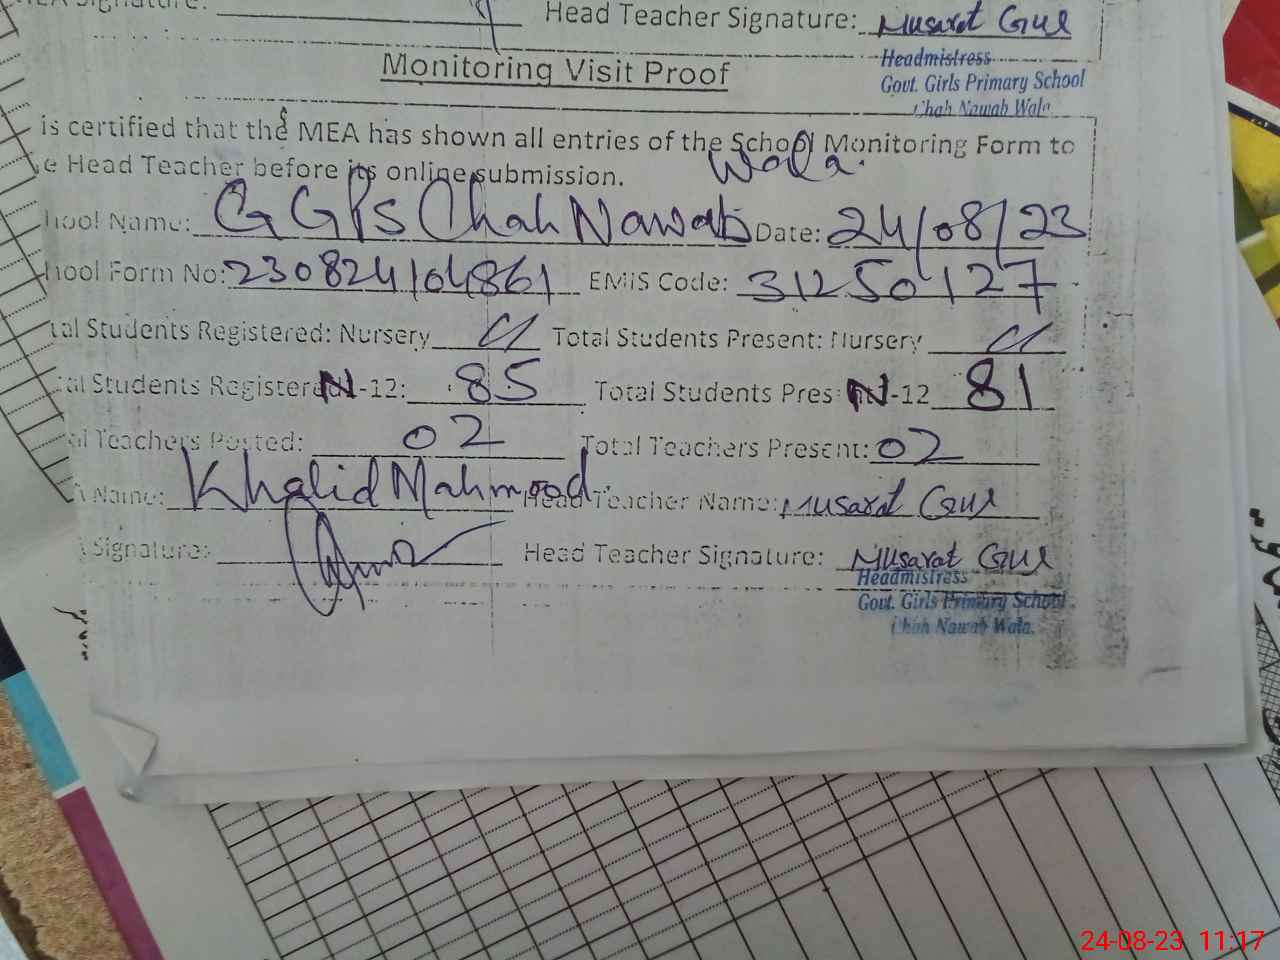 Signature:
Head Teacher Signature: Musarat Gul
Headmistress
Govt. Girls Primary School
Chah Nawab Wala
Monitoring Visit Proof
is certified that the MEA has shown all entries of the School Monitoring Form to
e Head Teacher before its online submission.
Wala.
hool Name: GGPS Chah Nawab Date: 24/08/23
hool Form No: 230824104861 EMIS Code: 31250127
tal Students Registered: Nursery Total Students Present: Nursery
tal Students Registered N-12: 85 Total Students Pres N-12 81
al Teachers Posted: 02 Total Teachers Present: 02
A Name: Khalid Mahmood Head Teacher Name: Musarat Gul
A Signature: Head Teacher Signature: Musarat Gul
Headmistress
Govt. Girls Primary School
Chah Nawab Wala.
24-08-23 11:17